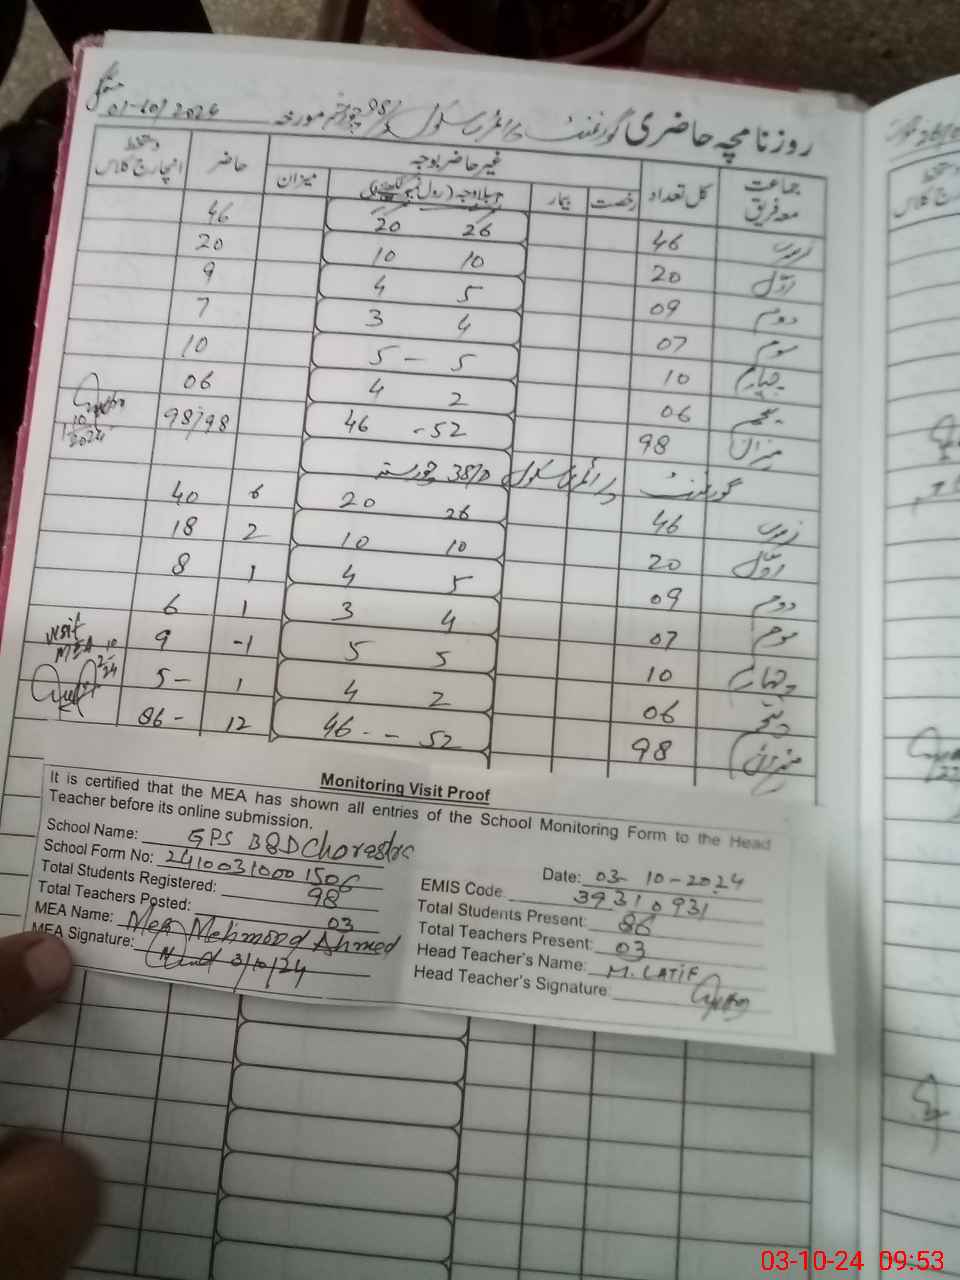 روزنامچہ حاضری گورنمنٹ پرائمری سکول مورخہ 01-10/2024
جماعت معہ فریق کل تعداد غیر حاضر بوجہ حاضر دستخط انچارج کلاس
رخصت بیمار میزان
46 26 20 46
اول 20 10 10 20
دوم 09 5 4 9
سوم 07 4 3 7
چہارم 10 5 – 5 10
پنجم 06 2 4 06
میزان 98 52- 46 98/98
10
2024
گورنمنٹ پرائمری سکول
46 26 20 6 40
اول 20 10 10 2 18
دوم 09 5 4 1 8
سوم 07 4 3 1 6
چہارم 10 5 5 -1 9
پنجم 06 2 4 1 5-
میزان 98 52 -- 46 12 86-
visit
MEA
Monitoring Visit Proof
It is certified that the MEA has shown all entries of the School Monitoring Form to the Head
Teacher before its online submission.
School Name: GPS BQD Chorastra
School Form No: 24100310001506
Total Students Registered: 98
Total Teachers Posted: 03
MEA Name: Mehmood Ahmed
MEA Signature: 3/10/24
Date: 03-10-2024
EMIS Code 39310931
Total Students Present: 86
Total Teachers Present: 03
Head Teacher's Name: M. LATIF
Head Teacher's Signature:
03-10-24 09:53